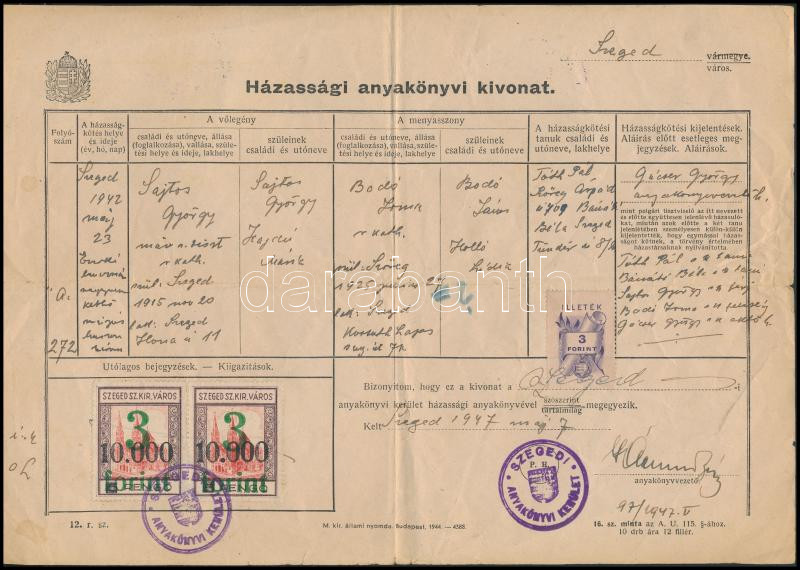 Szeged vármegye.
város.
Házassági anyakönyvi kivonat.
Folyó-
szám
A házasság-
kötés helye
és ideje
(év, hó, nap)
A vőlegény
családi és utóneve, állása
(foglalkozása), vallása, szüle-
tési helye és ideje, lakhelye
szüleinek
családi és utóneve
A menyasszony
családi és utóneve, állása
(foglalkozása), vallása, szüle-
tési helye és ideje, lakhelye
szüleinek
családi és utóneve
A házasságkötési
tanuk családi és
utóneve, lakhelye
Házasságkötési kijelentések.
Aláírás előtt esetleges meg-
jegyzések. Aláírások.
"a"
272
Szeged
1942
máj
23
Sajtos
György
r. kath.
szül. Szeged
1915 nov 20
lak. Szeged
Ilona u 11
Sajtos
György
Hajdú
Mária
Bodó
Ilona
r. kath.
szül. Szőreg
lak. Szeged
Kossuth Lajos
Bodó
János
Holló
Tóth Pál
Béla Szeged
Gácser György
anyakönyvvezető h.
mint polgári tisztviselő az itt nevezett
és előtte együttesen jelenlévő házasulók-
hoz, miután azok előtte a két tanu
jelenlétében személyesen külön-külön
kijelentették, hogy egymással házas-
ságot kötnek, a törvény értelmében
házastársaknak nyilvánította.
Tóth Pál s. k. tanu
Sajtos György s. k. férj
Bodó Ilona s. k. feleség
Gácser György s. k. aktv h.
darabanth
ILLETÉK
3
FORINT
Utólagos bejegyzések. — Kiigazítások.
SZEGED SZ. KIR. VÁROS
3
10.000
forint
SZEGED SZ. KIR. VÁROS
3
10.000
forint
Bizonyítom, hogy ez a kivonat a Szeged -i
anyakönyvi kerület házasságí anyakönyvével szószerint
tartalmilag megegyezik.
Kelt Szeged 1947 máj 7
P. H.
SZEGEDI
ANYAKÖNYVI KERÜLET
SZEGEDI
ANYAKÖNYVI KERÜLET
anyakönyvvezető
97/1947. V
12. r. sz.
M. kir. állami nyomda. Budapest, 1944. — 4388.
16. sz. minta az A. U. 115. §-ához.
10 drb ára 12 fillér.